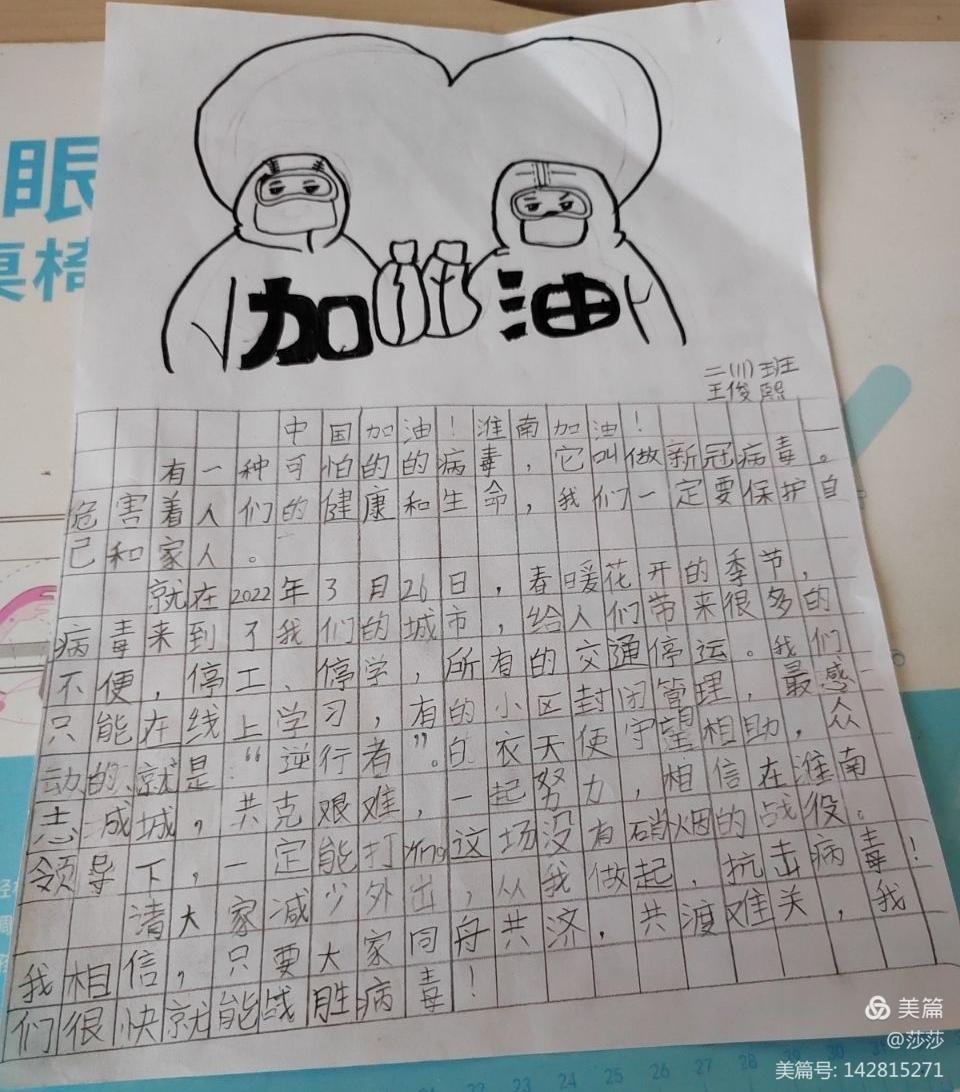 眼
桌椅
加油
二(11)班
王俊熙
中国加油！淮南加油！
有一种可怕的的病毒，它叫做新冠病毒。
危害着人们的健康和生命，我们一定要保护自
己和家人。
就在2022年3月26日，春暖花开的季节，
病毒来到了我们的城市，给人们带来很多的
不便，停工、停学，所有的交通停运。我们
只能在线上学习，有的小区封闭管理，最感
动的就是“逆行者”。白衣天使守望相助，众
志成城，共克艰难，一起努力，相信在淮南
领导下，一定能打yíng这场没有硝烟的战役。
请大家减少外出，从我做起，抗击病毒！
我相信，只要大家同舟共济，共渡难关，我
们很快就能战胜病毒！
美篇
@莎莎
美篇号: 142815271